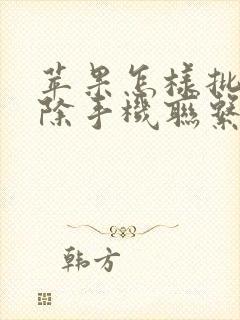 苹果怎樣批
除手機聯繫
韩方